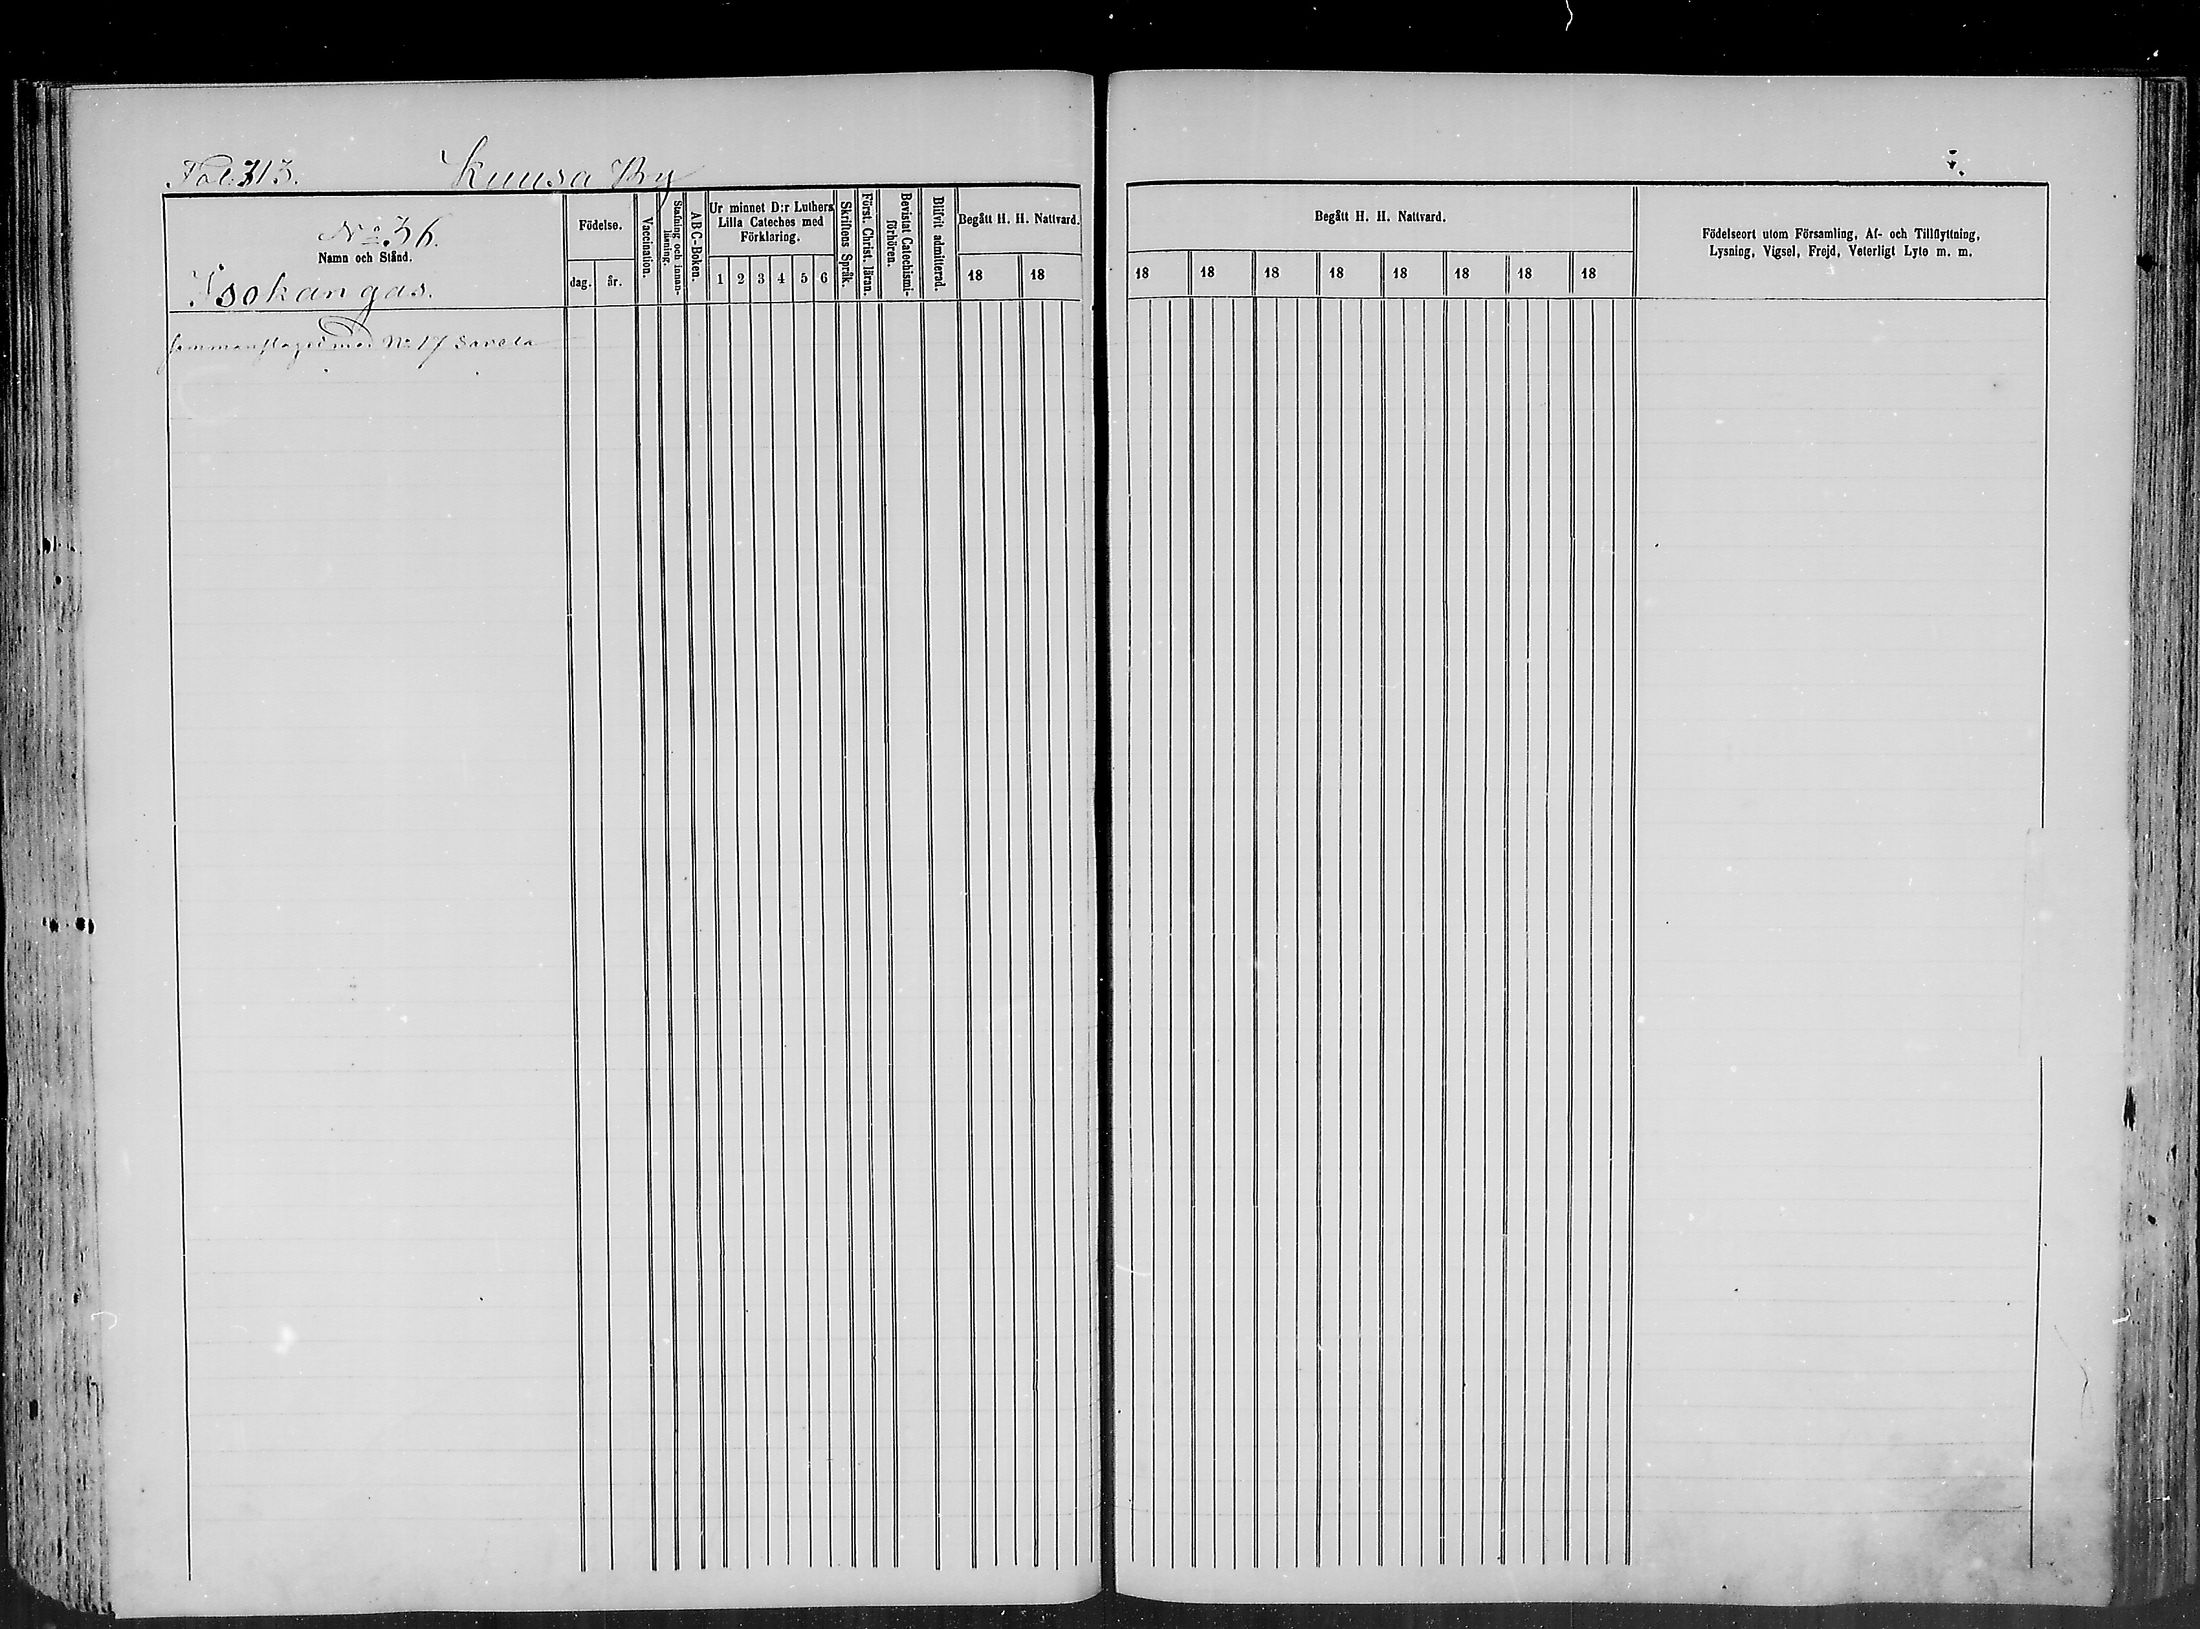 Fol. 313. Kuusa By
No 36.
Namn och Stånd.
Isokangas.
Födelse.
dag. år.
Vaccination.
Stafning och innan-
läsning.
ABC-Boken.
Ur minnet D:r Luthers
Lilla Cateches med
Förklaring.
1 2 3 4 5 6
Skriftens Språk.
Först. Christ. läran.
Bevistat Catechismi-
förhören.
Blifvit admitterad.
Begått H. H. Nattvard.
18 18
Begått H. H. Nattvard.
18 18 18 18 18 18 18 18
Födelseort utom Församling, Af- och Tillflyttning,
Lysning, Vigsel, Frejd, Veterligt Lyte m. m.
sammanslaget med No 17 Savela